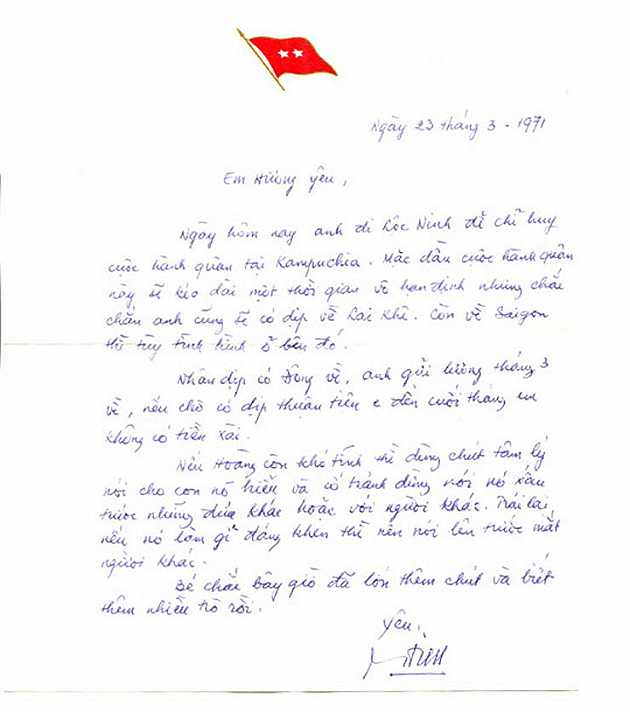 Ngày 23 tháng 3 - 1971
Em Hương yêu,
Ngày hôm nay anh đi Lộc Ninh để chỉ huy
cuộc hành quân tại Kampuchia. Mặc dầu cuộc hành quân
này sẽ kéo dài một thời gian vô hạn định nhưng chắc
chắn anh cũng sẽ có dịp về Lai Khê. Còn về Saigon
thì tùy tình hình ở bên đó.
Nhân dịp có Đông về, anh gửi lương tháng 3
về, nếu chờ có dịp thuận tiện e đến cuối tháng em
không có tiền xài.
Nếu Hoàng còn khó tính thì dùng chút tâm lý
nói cho con nó hiểu và cố tránh đừng nói nó xấu
trước những đứa khác hoặc với người khác. Trái lại
nếu nó làm gì đáng khen thì nên nói lên trước mặt
người khác.
Bé chắc bây giờ đã lớn thêm chút và biết
thêm nhiều trò rồi.
Yêu,